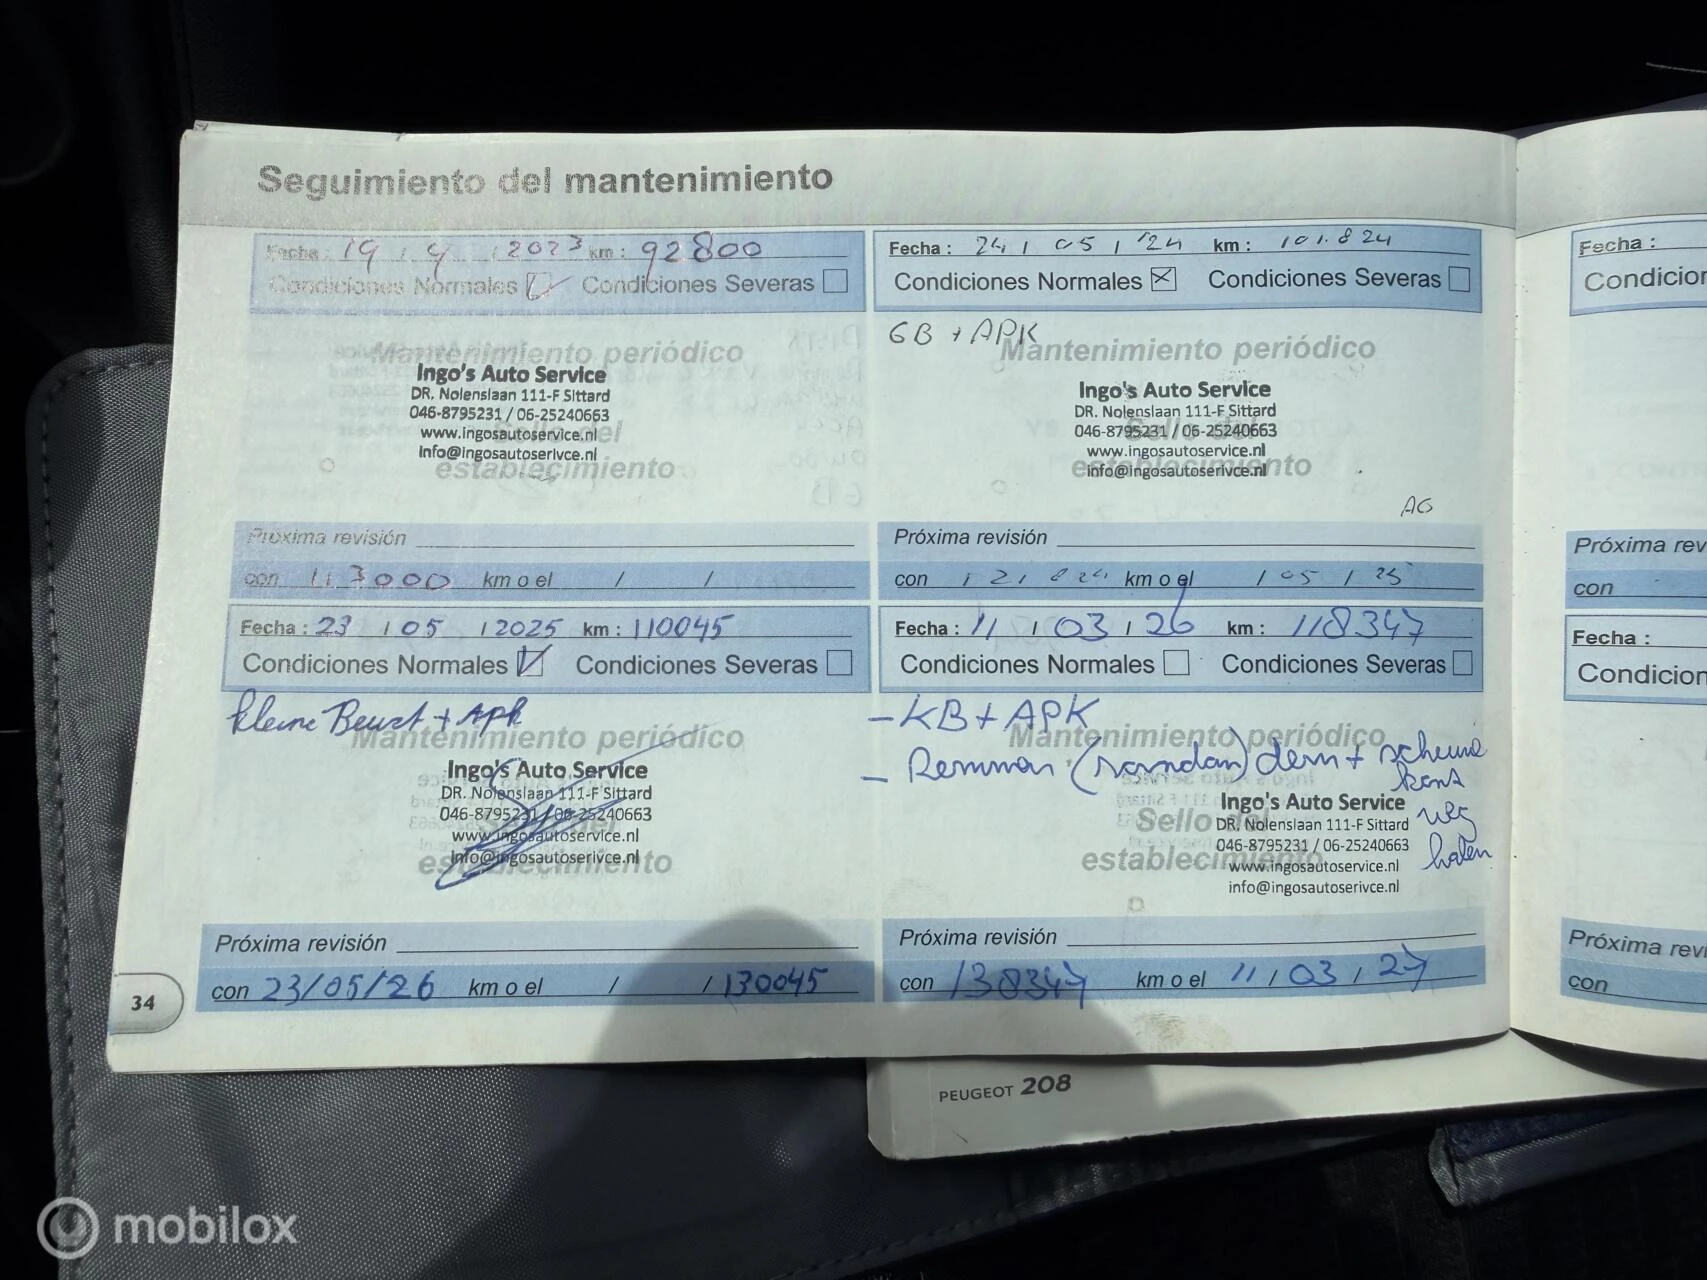 Seguimiento del mantenimiento
Fecha : 19 / 4 / 2023 km : 92800
Condiciones Normales Condiciones Severas
Mantenimiento periódico
Ingo's Auto Service
DR. Nolenslaan 111-F Sittard
046-8795231 / 06-25240663
www.ingosautoservice.nl
Sello del
info@ingosautoserivce.nl
establecimiento
Próxima revisión
con 113000 km o el / /
Fecha : 24 / 05 / '24 km : 101.824
Condiciones Normales Condiciones Severas
GB + APK
Mantenimiento periódico
Ingo's Auto Service
DR. Nolenslaan 111-F Sittard
046-8795231 / 06-25240663
Sello del
www.ingosautoservice.nl
info@ingosautoserivce.nl
establecimiento
AG
Próxima revisión
con 121824 km o el / 05 / 25
Fecha : 23 / 05 / 2025 km : 110045
Condiciones Normales Condiciones Severas
kleine Beurt + Apk
Mantenimiento periódico
Ingo's Auto Service
DR. Nolenslaan 111-F Sittard
046-8795231 / 06-25240663
Sello del
www.ingosautoservice.nl
info@ingosautoserivce.nl
establecimiento
Próxima revisión
con 23/05/26 km o el / / 130045
Fecha : 11 / 03 / 26 km : 118347
Condiciones Normales Condiciones Severas
- KB + APK
Mantenimiento periódico
- Remmen (rondom) dem +
kant
weg
halen
Ingo's Auto Service
Sello del
DR. Nolenslaan 111-F Sittard
046-8795231 / 06-25240663
establecimiento
www.ingosautoservice.nl
info@ingosautoserivce.nl
Próxima revisión
con 138347 km o el 11 / 03 / 27
34
Fecha :
Condicion
Próxima rev
con
Fecha :
Condicion
Próxima revi
con
PEUGEOT 208
mobilox